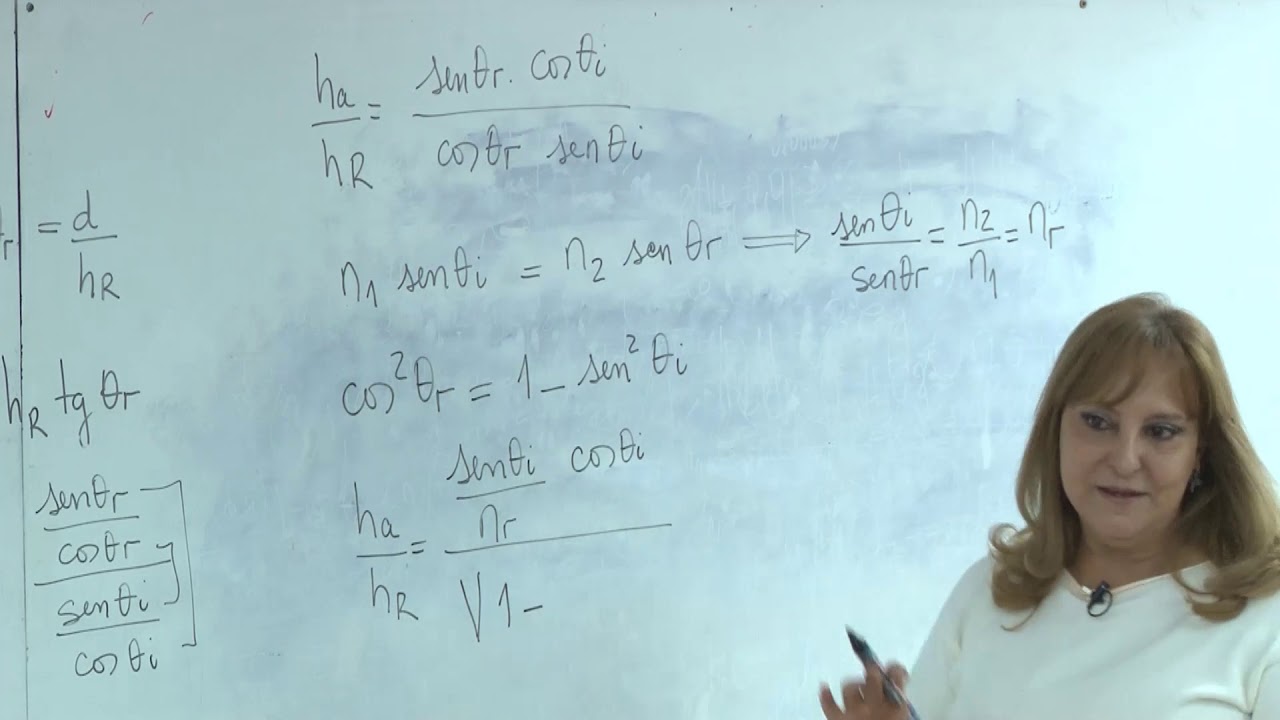 ha/hR = senθr. cosθi / cosθr senθi
r = d/hR
n1 senθi = n2 senθr ⟹ senθi/senθr = n2/n1 = nr
hR tg θr
cos²θr = 1 - sen²θi
senθr/cosθr
senθi/cosθi
ha/hR = senθi/nr cosθi / √1 -